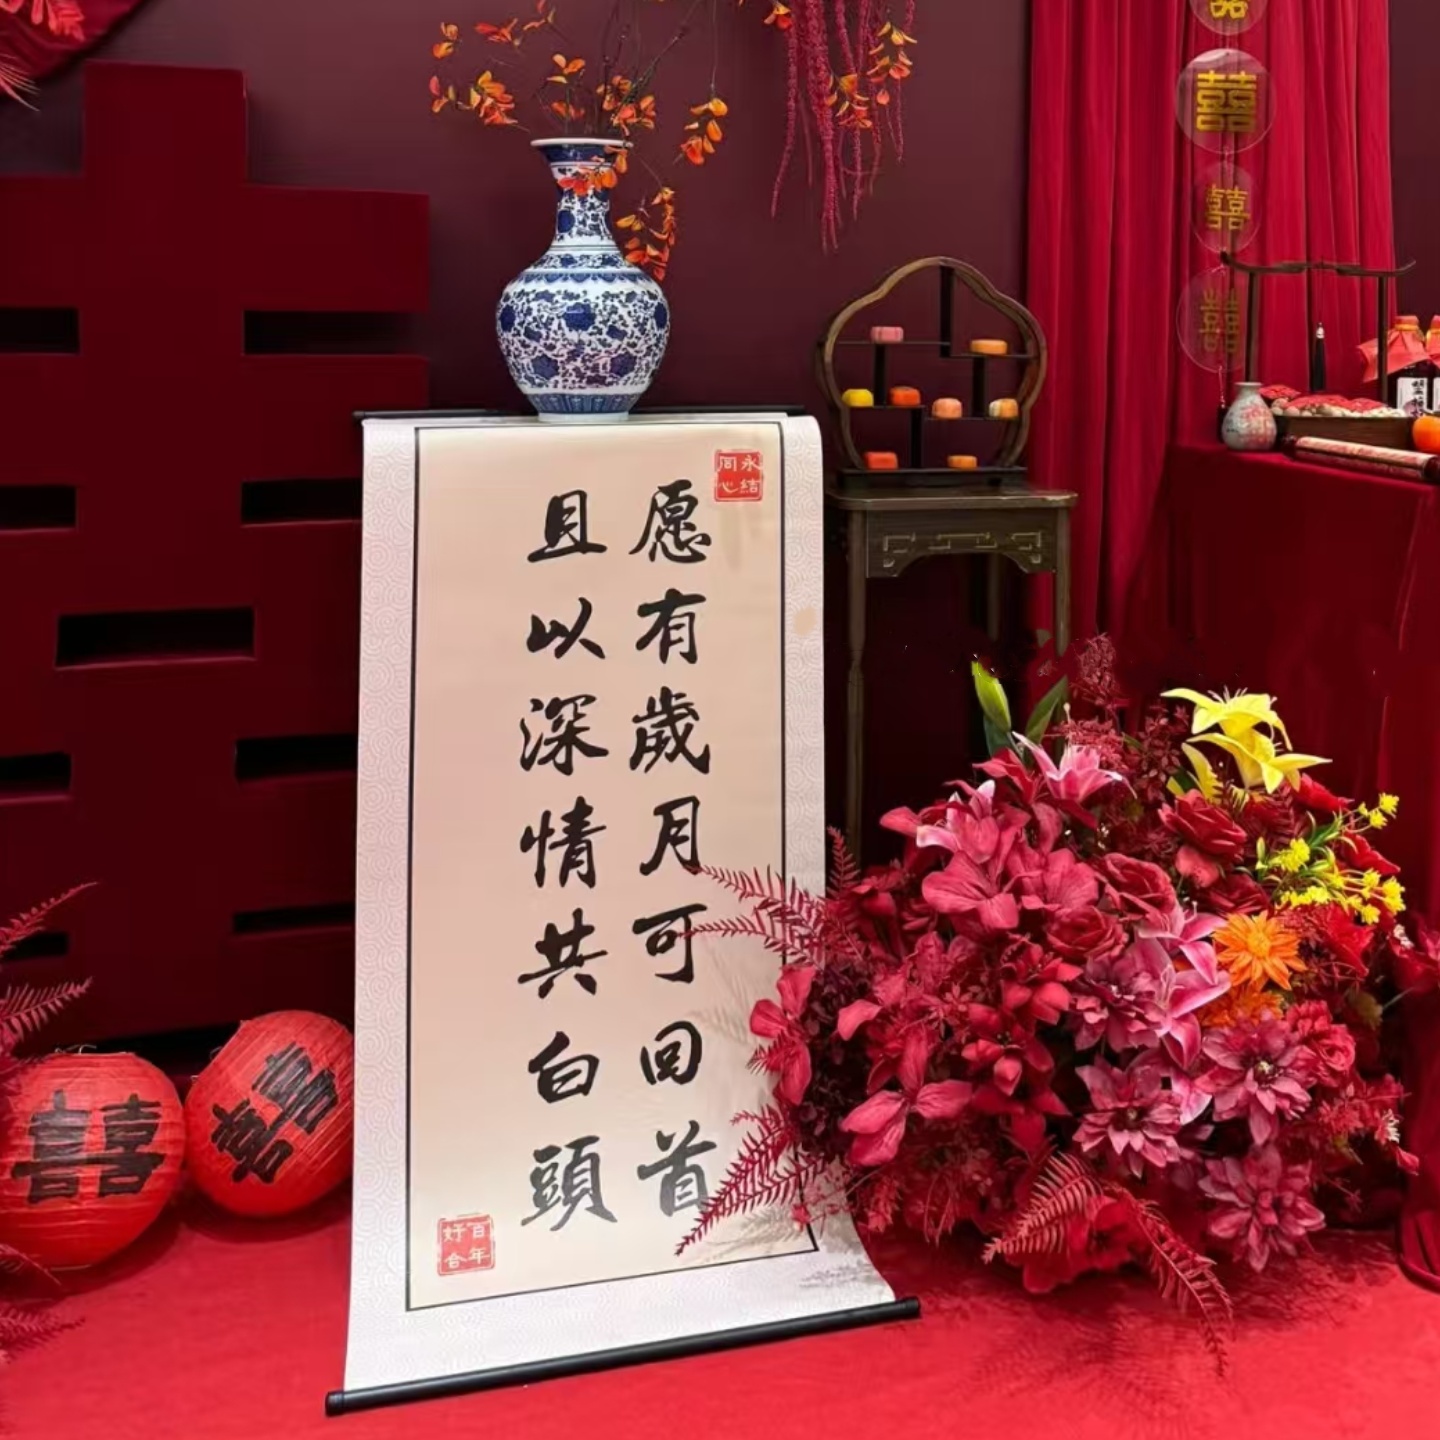 永结
同心
愿有歲月可回首
且以深情共白頭
百年
好合
囍
囍
囍
囍
囍
囍